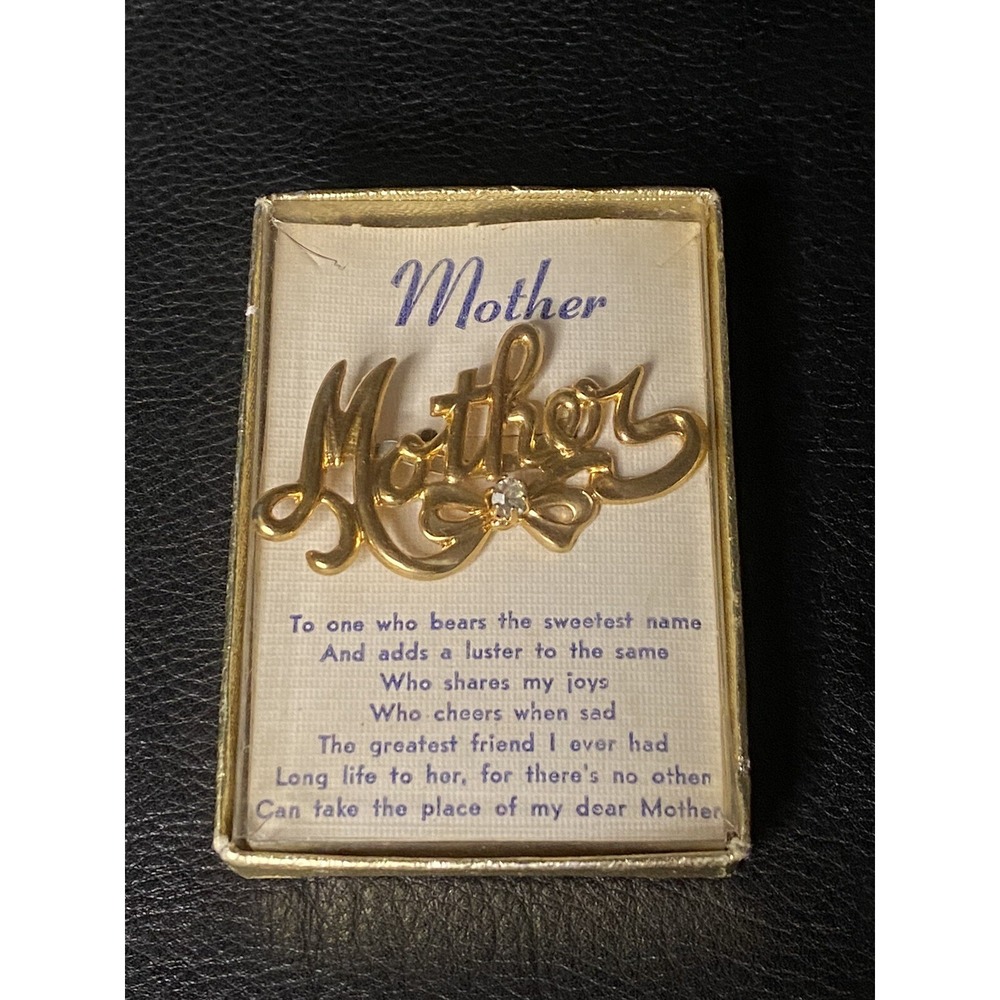 Mother
Mother
To one who bears the sweetest name
And adds a luster to the same
Who shares my joys
Who cheers when sad
The greatest friend I ever had
Long life to her, for there's no other
Can take the place of my dear Mother